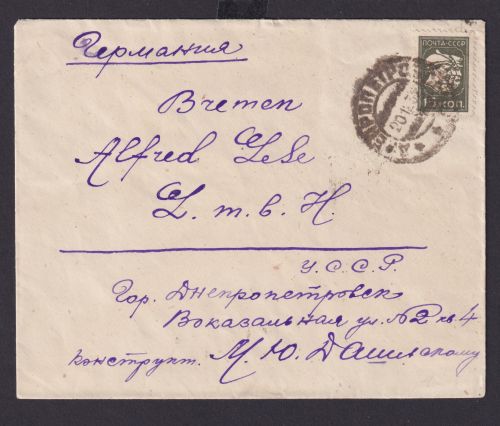 Германия
ПОЧТА·СССР
15 КОП.
Bremen
Alfred
L. m. b. H.
У.С.С.Р.
Гор. Днепропетровск
Вокзальная ул. №2 кв. 4
конструкт. М. Ю.